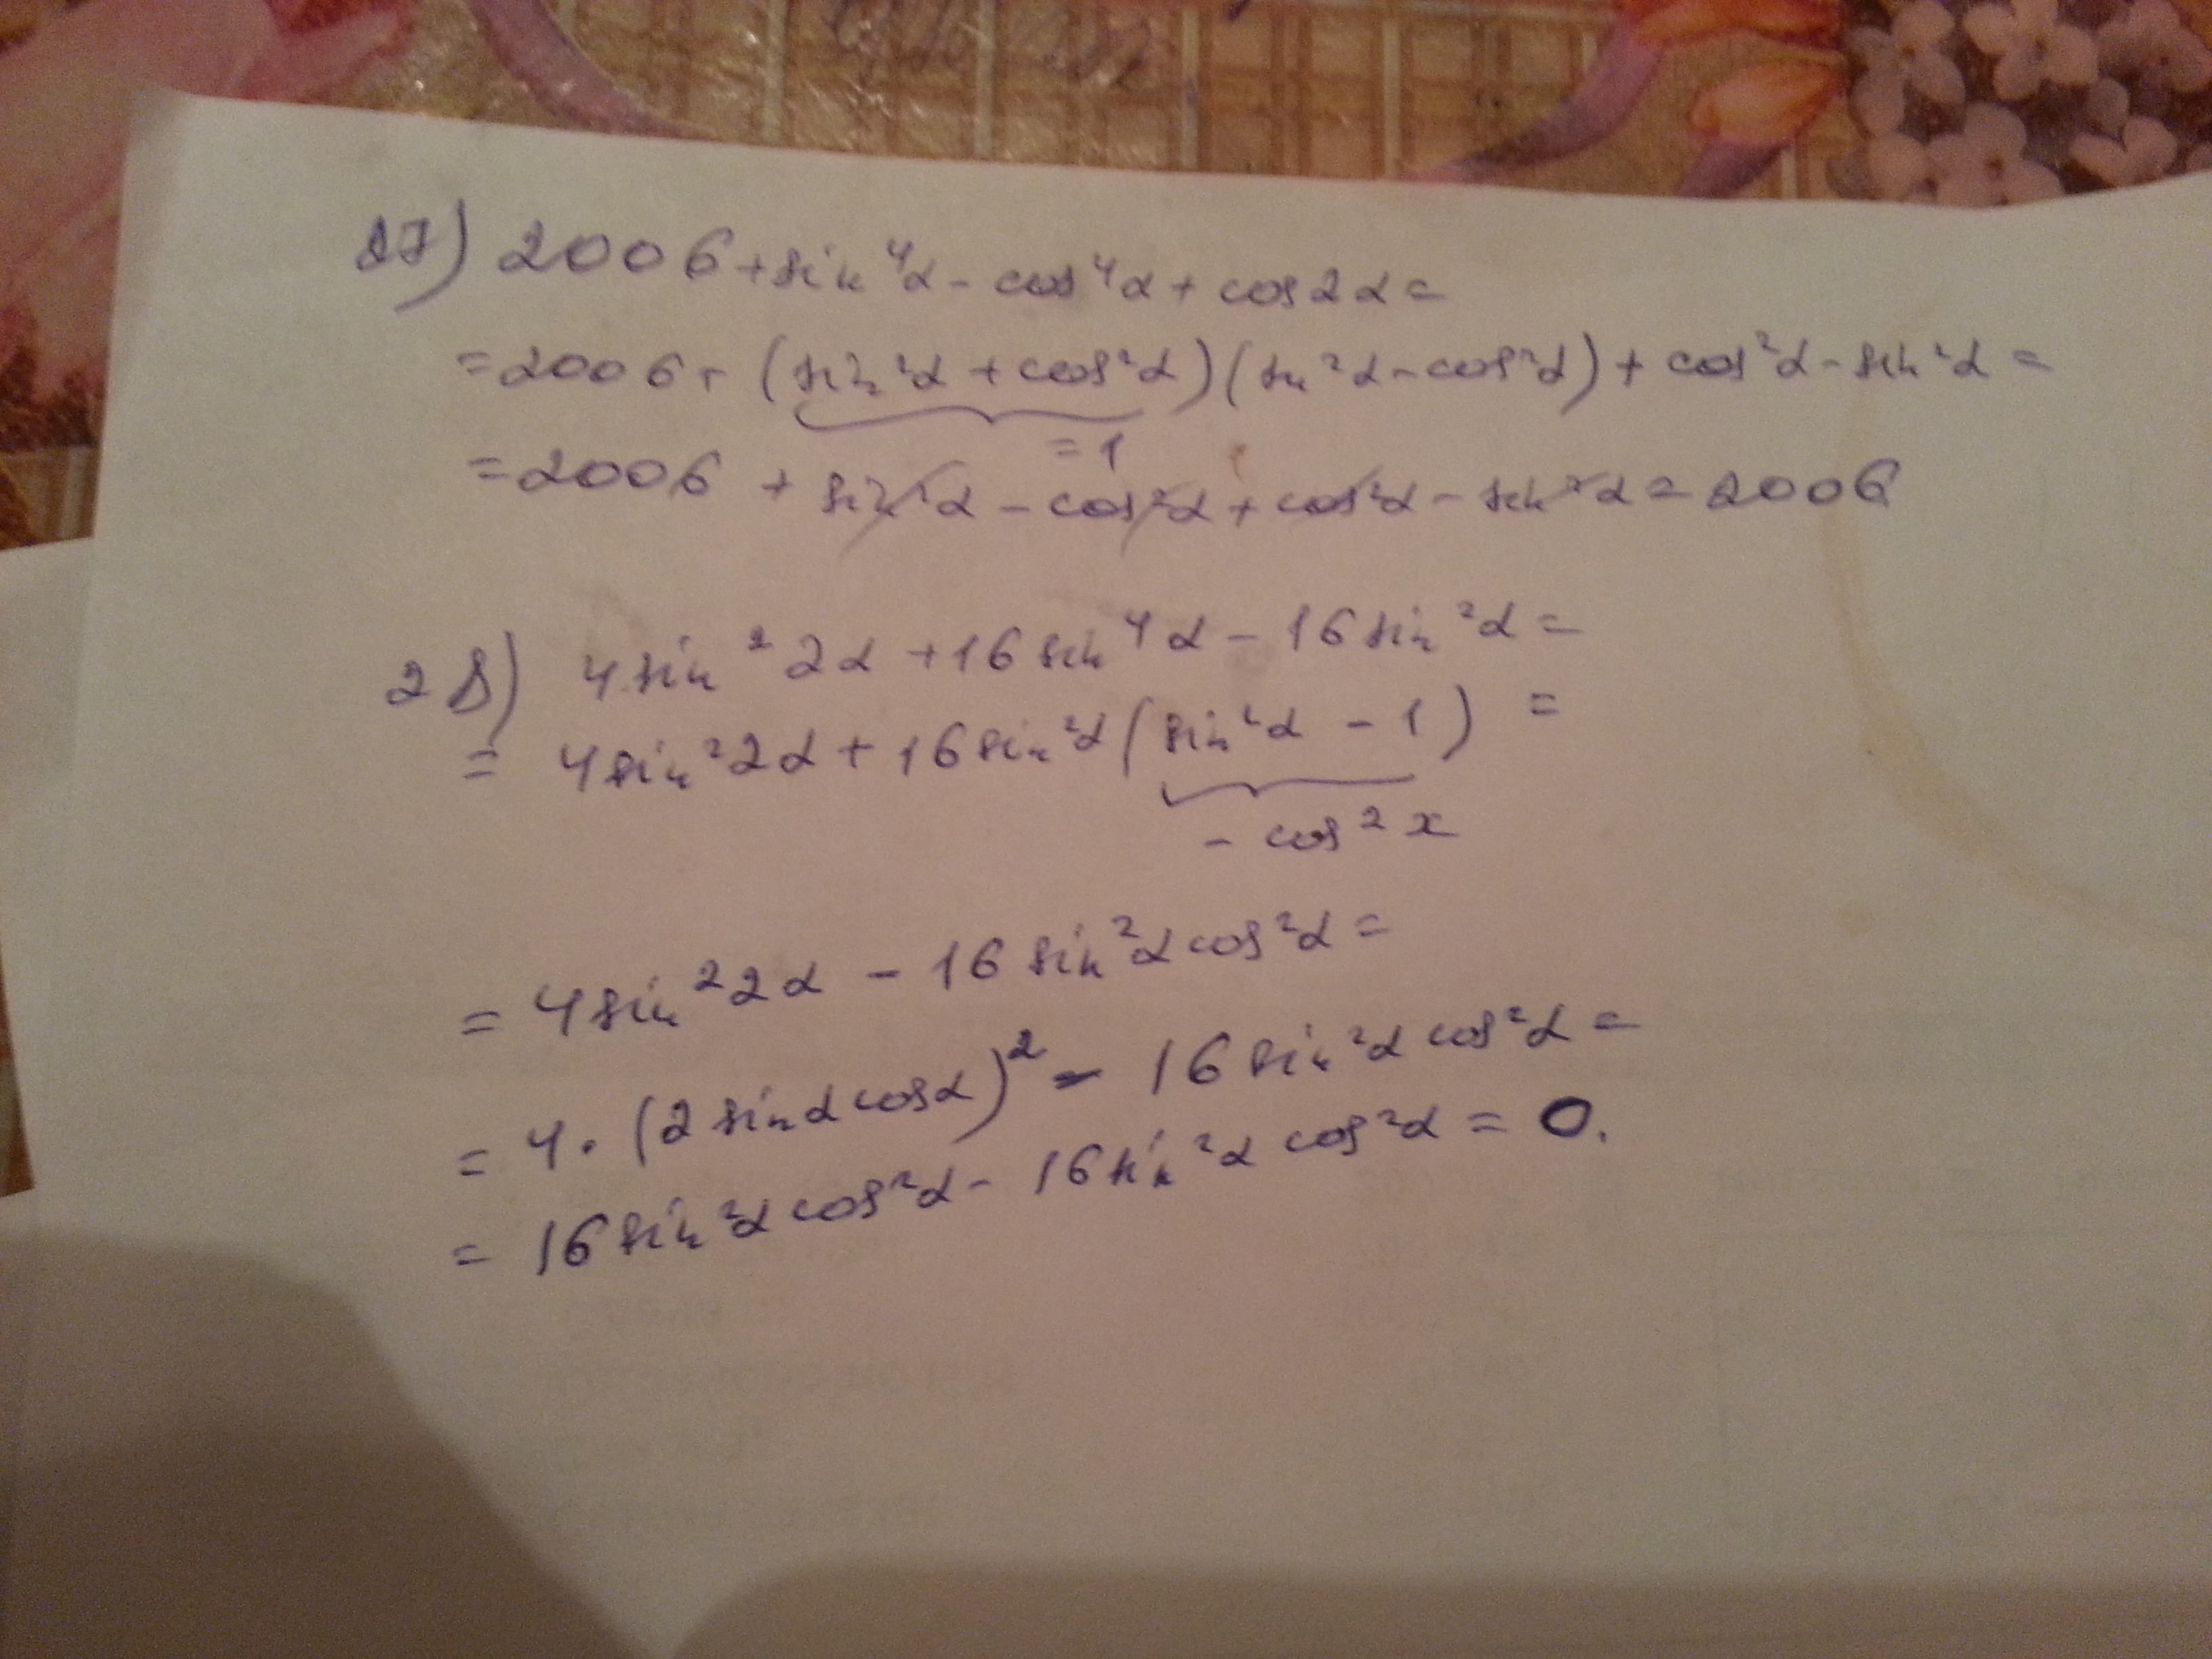 27) 2006 + sin⁴α - cos⁴α + cos2α =
= 2006 + (sin²α + cos²α)(sin²α - cos²α) + cos²α - sin²α =
= 1
= 2006 + sin²α - cos²α + cos²α - sin²α = 2006
28) 4sin²2α + 16sin⁴α - 16sin²α =
= 4sin²2α + 16sin²α (sin²α - 1) =
- cos²x
= 4sin²2α - 16sin²α cos²α =
= 4·(2sinα cosα)² - 16sin²α cos²α =
= 16sin²α cos²α - 16sin²α cos²α = 0.